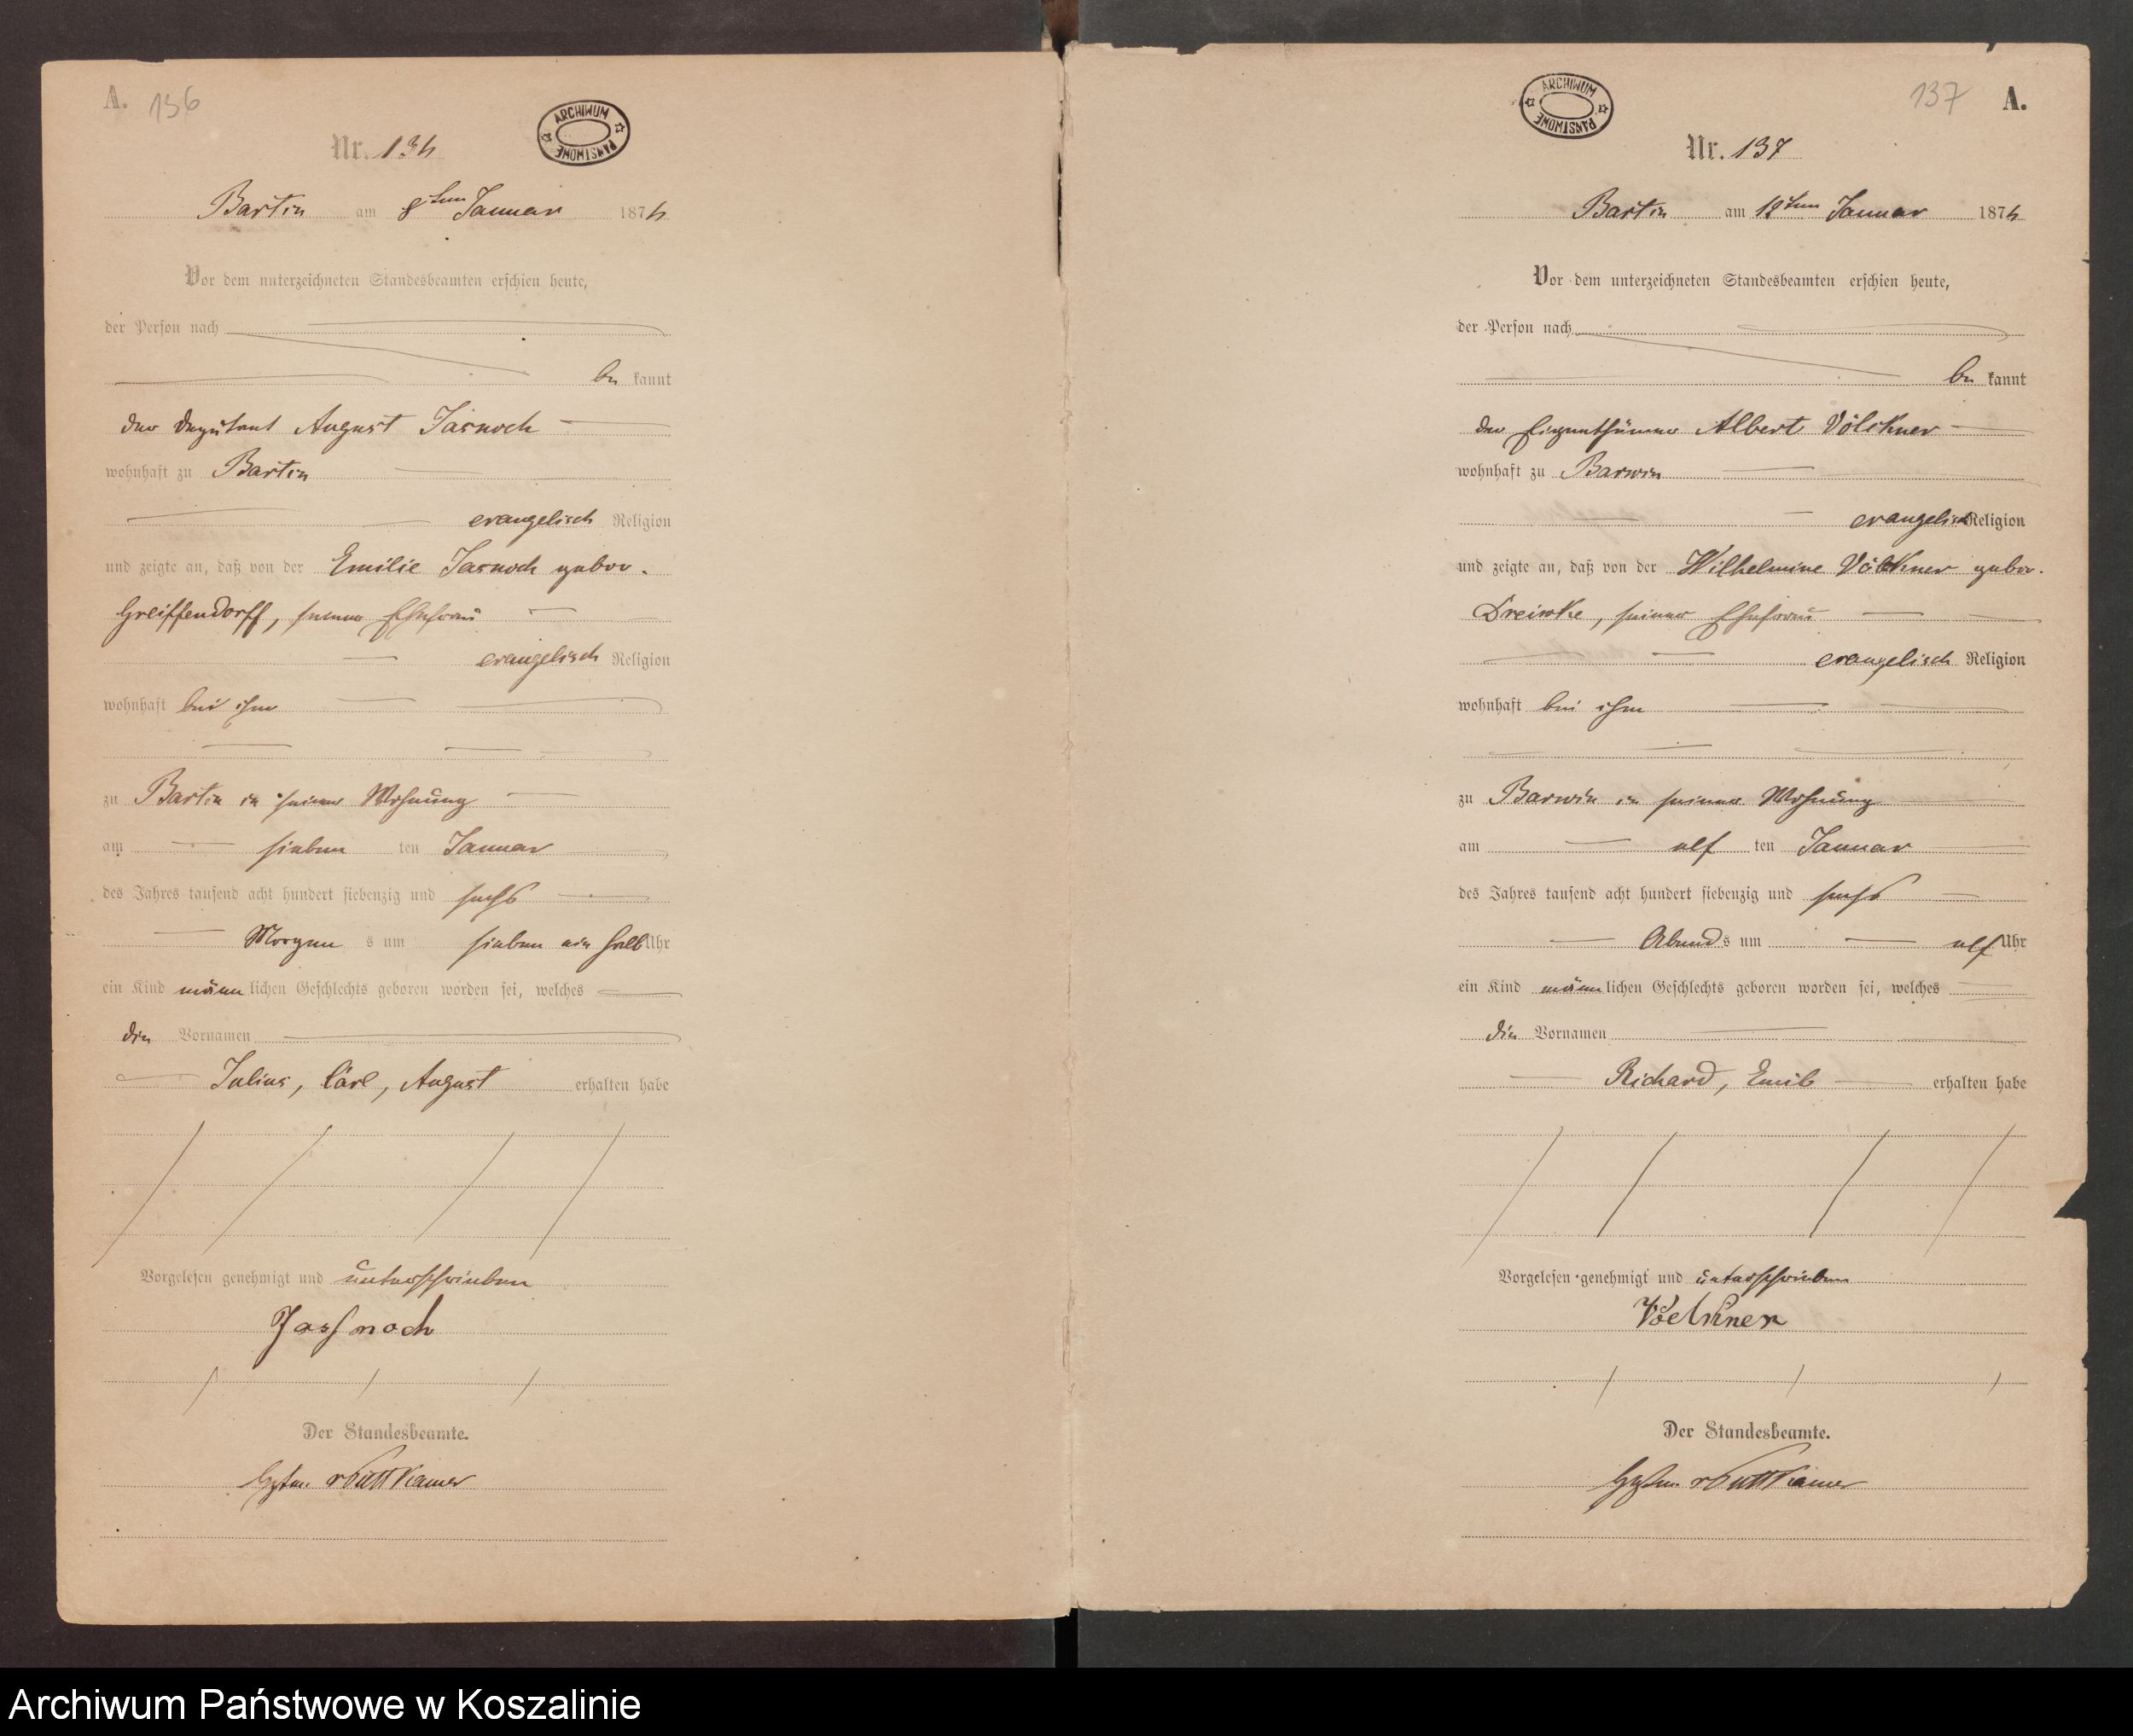 A. 136
ARCHIWUM PAŃSTWOWE
Nr. 136
Bartin am 8ten Januar 1876
Vor dem unterzeichneten Standesbeamten erschien heute,
der Person nach
be kannt
der Deputant August Jasnoch
wohnhaft zu Bartin
evangelisch Religion
und zeigte an, daß von der Emilie Jasnoch gebor.
Greiffendorff, seiner Ehefrau
evangelisch Religion
wohnhaft bei ihm
zu Bartin in seiner Wohnung
am sieben ten Januar
des Jahres tausend acht hundert siebenzig und sechs
Morgen s um sieben ein halb Uhr
ein Kind männ lichen Geschlechts geboren worden sei, welches
die Vornamen
Julius, Carl, August erhalten habe
Vorgelesen genehmigt und unterschrieben
Jassnoch
Der Standesbeamte.
v Puttkamer
137 A.
ARCHIWUM PAŃSTWOWE
Nr. 137
Bartin am 12ten Januar 1876
Vor dem unterzeichneten Standesbeamten erschien heute,
der Person nach
be kannt
der Eigenthümer Albert Völckner
wohnhaft zu Barwin
evangelisch Religion
und zeigte an, daß von der Wilhelmine Völckner gebor.
seiner Ehefrau
evangelisch Religion
wohnhaft bei ihm
zu Barwin in seiner Wohnung
am elf ten Januar
des Jahres tausend acht hundert siebenzig und sechs
Abend s um elf Uhr
ein Kind männ lichen Geschlechts geboren worden sei, welches
die Vornamen
Richard, Emil erhalten habe
Vorgelesen genehmigt und unterschrieben
Voelkner
Der Standesbeamte.
v Puttkamer
Archiwum Państwowe w Koszalinie